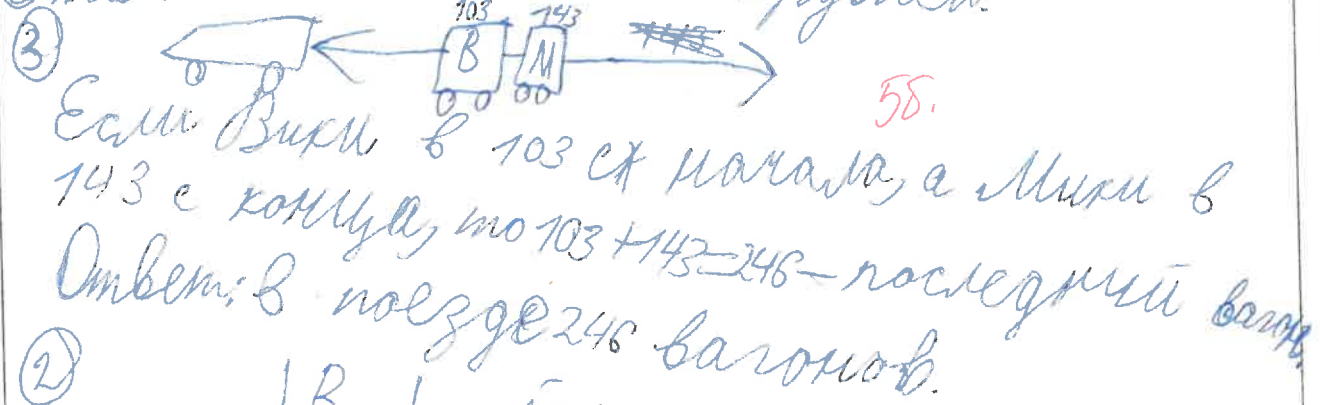 рублей.
3
103 143
В М
5б.
Если Вики в 103 с начала, а Мики в
143 с конца, то 103+143=246 – последний вагон,
Ответ: в поезде 246 вагонов.
2
В